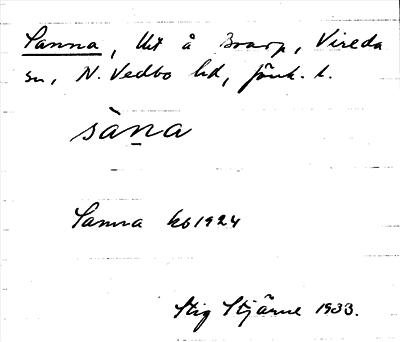 Sanna, Utj å Braarp, Vireda
sn, N. Vedbo hd, Jönk. l.
sàṉa
Sanna kb 1924
Stig Stjärne 1933.